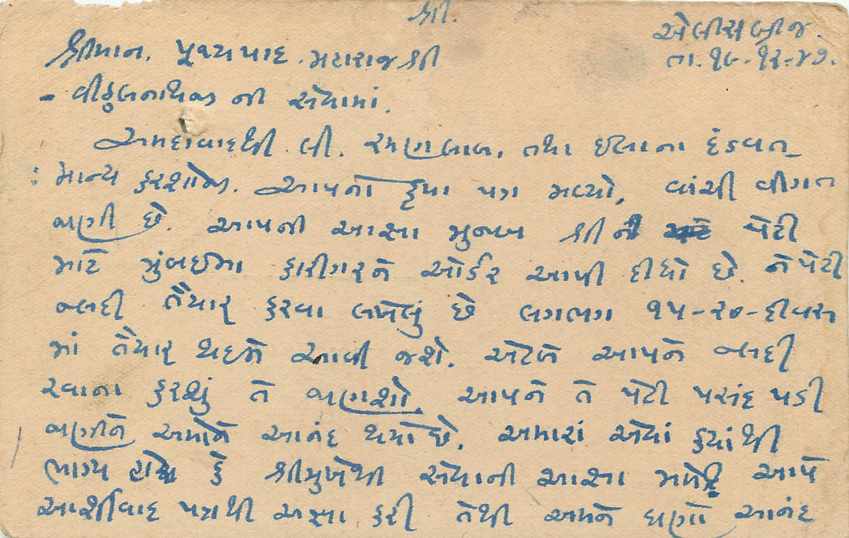 શ્રી.
એલીસબ્રીજ.
તા. ૧૯-૧૨-૪૭.
શ્રીમાન. પૂજ્યપાદ. મહારાજશ્રી
- વીઠ્ઠલનાથજી ની સેવામાં.
અમદાવાદથી લી. રમણલાલ, તથા ઈલાના દંડવત
માન્ય કરશોજી. આપનો કૃપા પત્ર મલ્યો, વાંચી વીગત
જાણી છે. આપની આજ્ઞા મુજબ શ્રીની પેટી
માટે મુંબઈમાં કારીગરને ઓર્ડર આપી દીધો છે. ને પેટી
જલદી તૈયાર કરવા લખેલું છે લગભગ ૧૫-૨૦-દીવસ
માં તૈયાર થઇને આવી જશે. એટલે આપને જલદી
રવાના કરશું તે જાણશો. આપને તે પેટી પસંદ પડી
જાણીને અમોને આનંદ થયો છે. અમારાં એવાં ક્યાંથી
ભાગ્ય કે શ્રીમુખેથી સેવાની આજ્ઞા મળે આપે
આર્શીવાદ પત્રથી આજ્ઞા કરી તેથી અમને ઘણો આનંદ